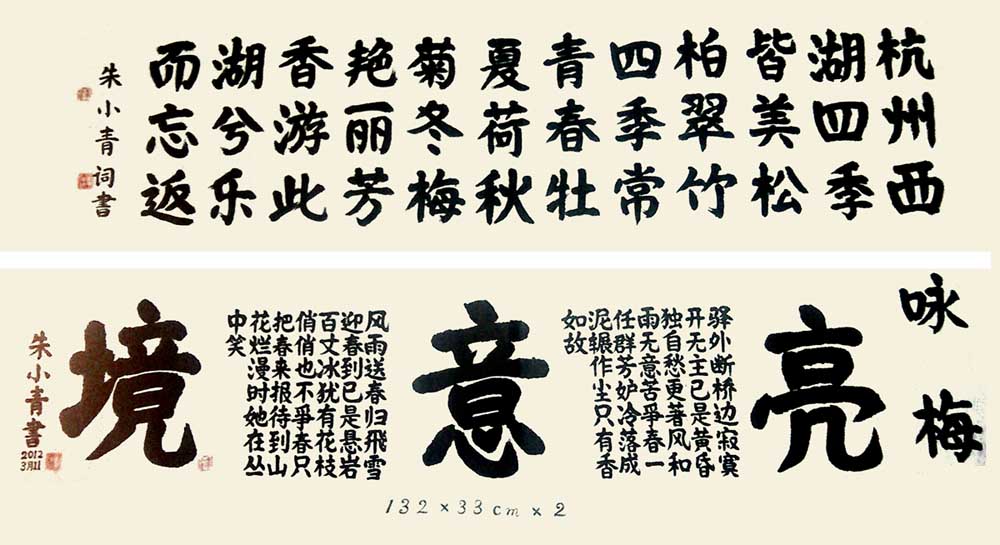 杭州西
湖四季
皆美松
柏翠竹
四季常
青春牡
夏荷秋
菊冬梅
艳丽芳
香游此
湖兮乐
而忘返
朱小青词書
咏梅
亮
驿外断桥边寂寞
开无主已是黄昏
独自愁更著风和
雨无意苦爭春一
任群芳妒冷落成
泥辗作尘只有香
如故
意
风雨送春归飛雪
迎春到已是悬岩
百丈冰犹有花枝
俏俏也不爭春只
把春来报待到山
花烂漫时她在丛
中笑
境
朱小青書
2012
3月11
132×33cm×2